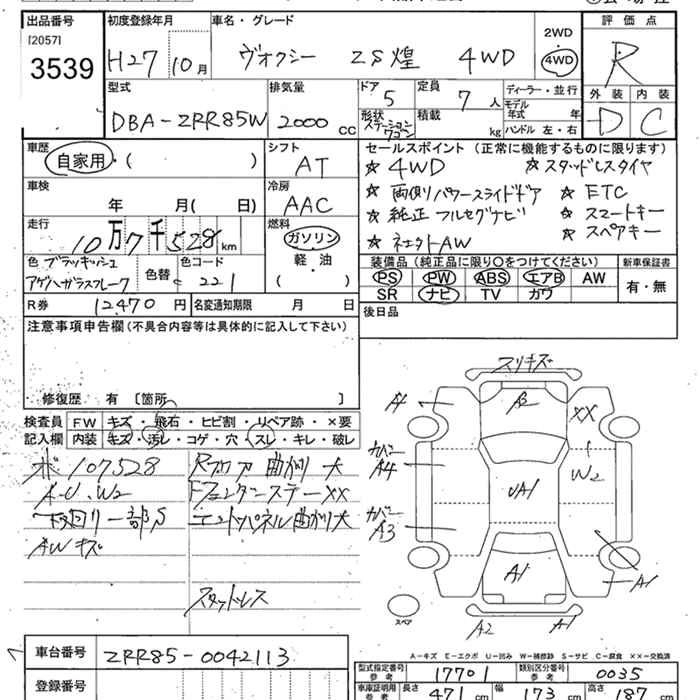 出品番号 初度登録年月 車名・グレード 2WD 評価点
[2057]
3539 H27 10月 ヴォクシー ZS煌 4WD 4WD R
型式 排気量 ドア 定員 ディーラー・並行 外装 内装
DBA-ZRR85W 2000 CC 5 7人 モデル年式 年 D C
形状 ステーションワゴン 積載 kg ハンドル 左・右
車歴 自家用・( ) シフト AT
セールスポイント(正常に機能するものに限ります)
☆4WD ☆スタッドレスタイヤ
☆両側パワースライドドア ☆ETC
☆純正フルセグナビ ☆スマートキー
☆スペアキー
☆ネエクトAW
車検 年 月( 日) 冷房 AAC
走行 10万7千528km 燃料 ガソリン
軽・油
( )
色 ブラッキッシュアゲハガラスフレーク 色替 色コード 221
装備品(純正品に限り○をつけてください) 新車保証書
PS PW ABS エアB AW 有・無
SR ナビ TV カワ
R券 12470円 名変通知期限 月 日
後日品
注意事項申告欄(不具合内容等は具体的に記入して下さい)
修復歴 有 〔箇所 〕
検査員記入欄 FW キズ・飛石・ヒビ割・リペア跡・×要
内装 キズ・汚レ・コゲ・穴・スレ・キレ・破レ
ボ107528 Rフロア曲がり大
A・U、W2 Fフェンダーステー××
下回り一部S エンドパネル曲がり大
AWキズ
スタッドレス
スリキズ
A1 B ××
カバー A4 W2
UA1
カバー A3
A1 A1
スペア A2 A1
A-キズ E-エクボ U-凹み W-補修跡 S-サビ C-腐食 ××-交換済
車台番号 ZRR85-0042113
登録番号
型式指定番号 参考 17701 類別区分番号 参考 0035
車庫証明用 参考 長さ 471cm 幅 173cm 高さ 187cm